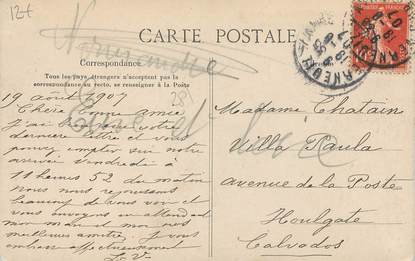 12+
CARTE POSTALE
Correspondance
Tous les pays étrangers n'acceptent pas la
correspondance au recto, se renseigner à la Poste
19 août 1907
28
Chère bonne amie,
J'ai bien reçu votre
dernière lettre et vous
pouvez compter sur notre
arrivée Vendredi à
11 heures 52 du matin
nous nous réjouissons
beaucoup de vous voir et
vous envoyons en attendant
mes
meilleures amitiés. Je vous
embrasse affectueusement
Madame Chatain
Villa Paula
avenue de la Poste
Houlgate
Calvados